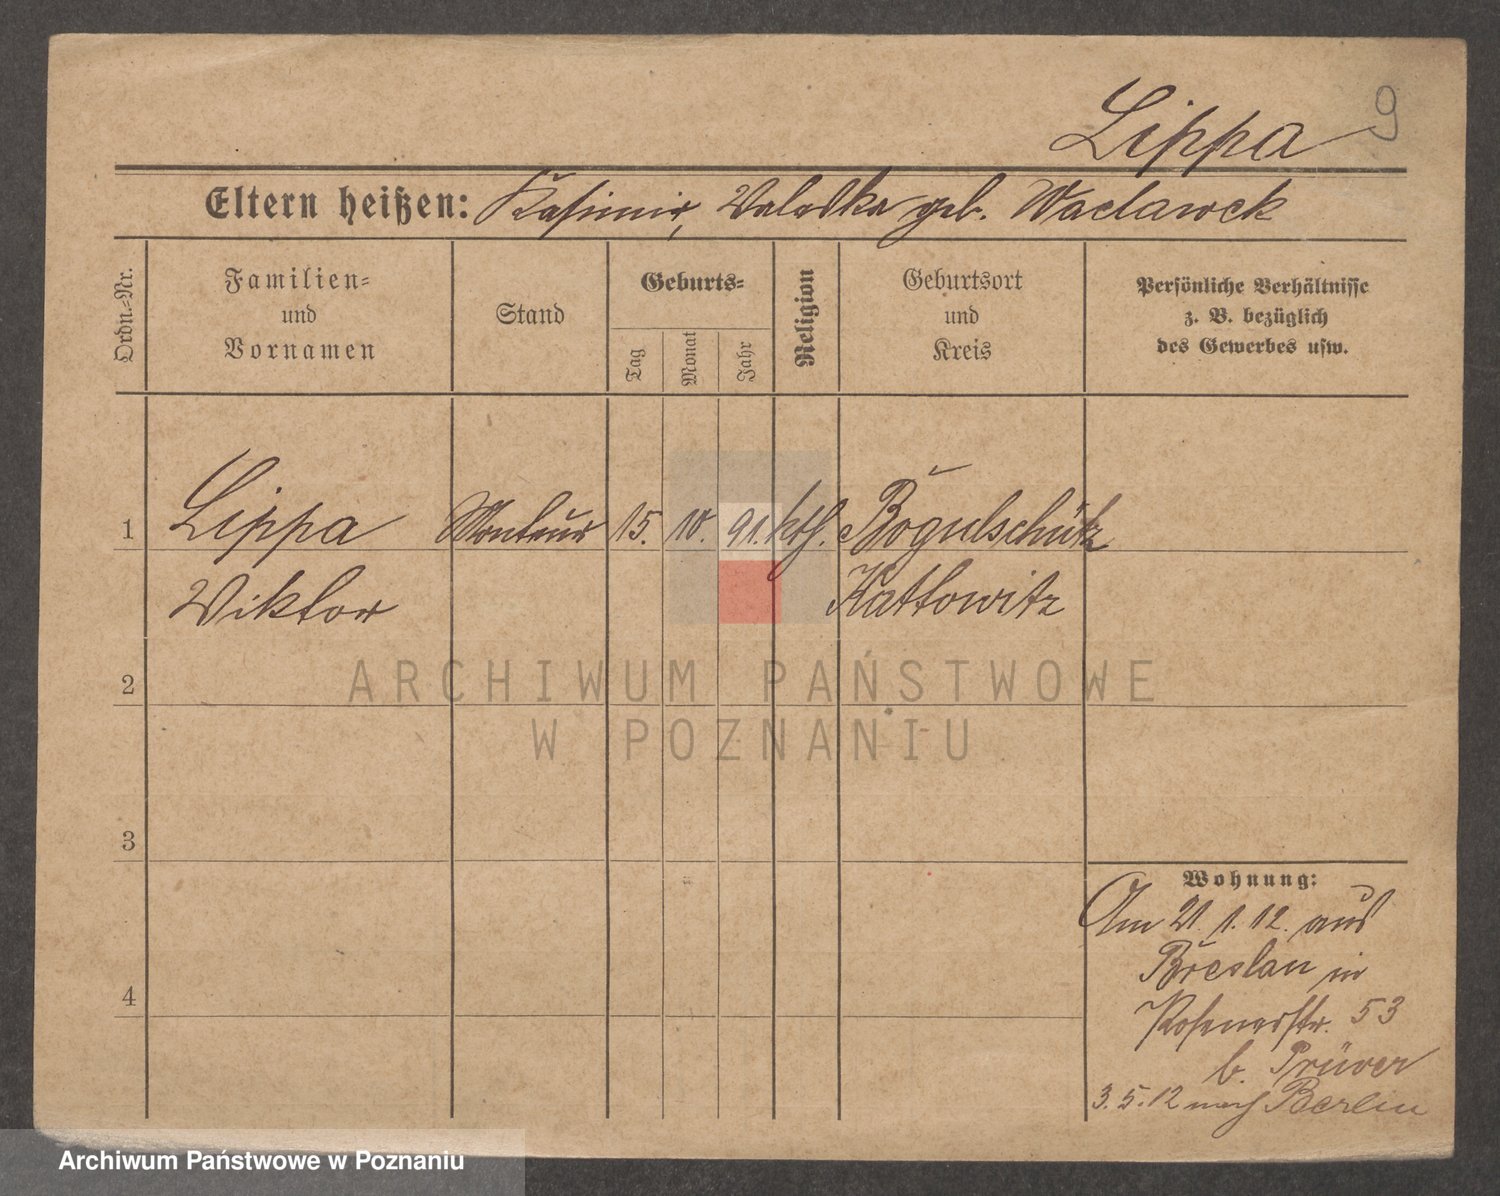 Lippa 9
Eltern heißen: Kasimir, Valeska geb. Waclawek
Ordn.-Nr.
Familien-
und
Vornamen
Stand
Geburts-
Tag
Monat
Jahr
Religion
Geburtsort
und
Kreis
Persönliche Verhältnisse
z. B. bezüglich
des Gewerbes usw.
1 Lippa Monteur 15. 10. 91. kth. Bogutschütz
Viktor Kattowitz
ARCHIWUM PAŃSTWOWE
W POZNANIU
2
3
4
Wohnung:
Am 21. 1. 12. aus
Breslau in
Posenerstr. 53
b. Prüver
3. 5. 12 nach Berlin
Archiwum Państwowe w Poznaniu